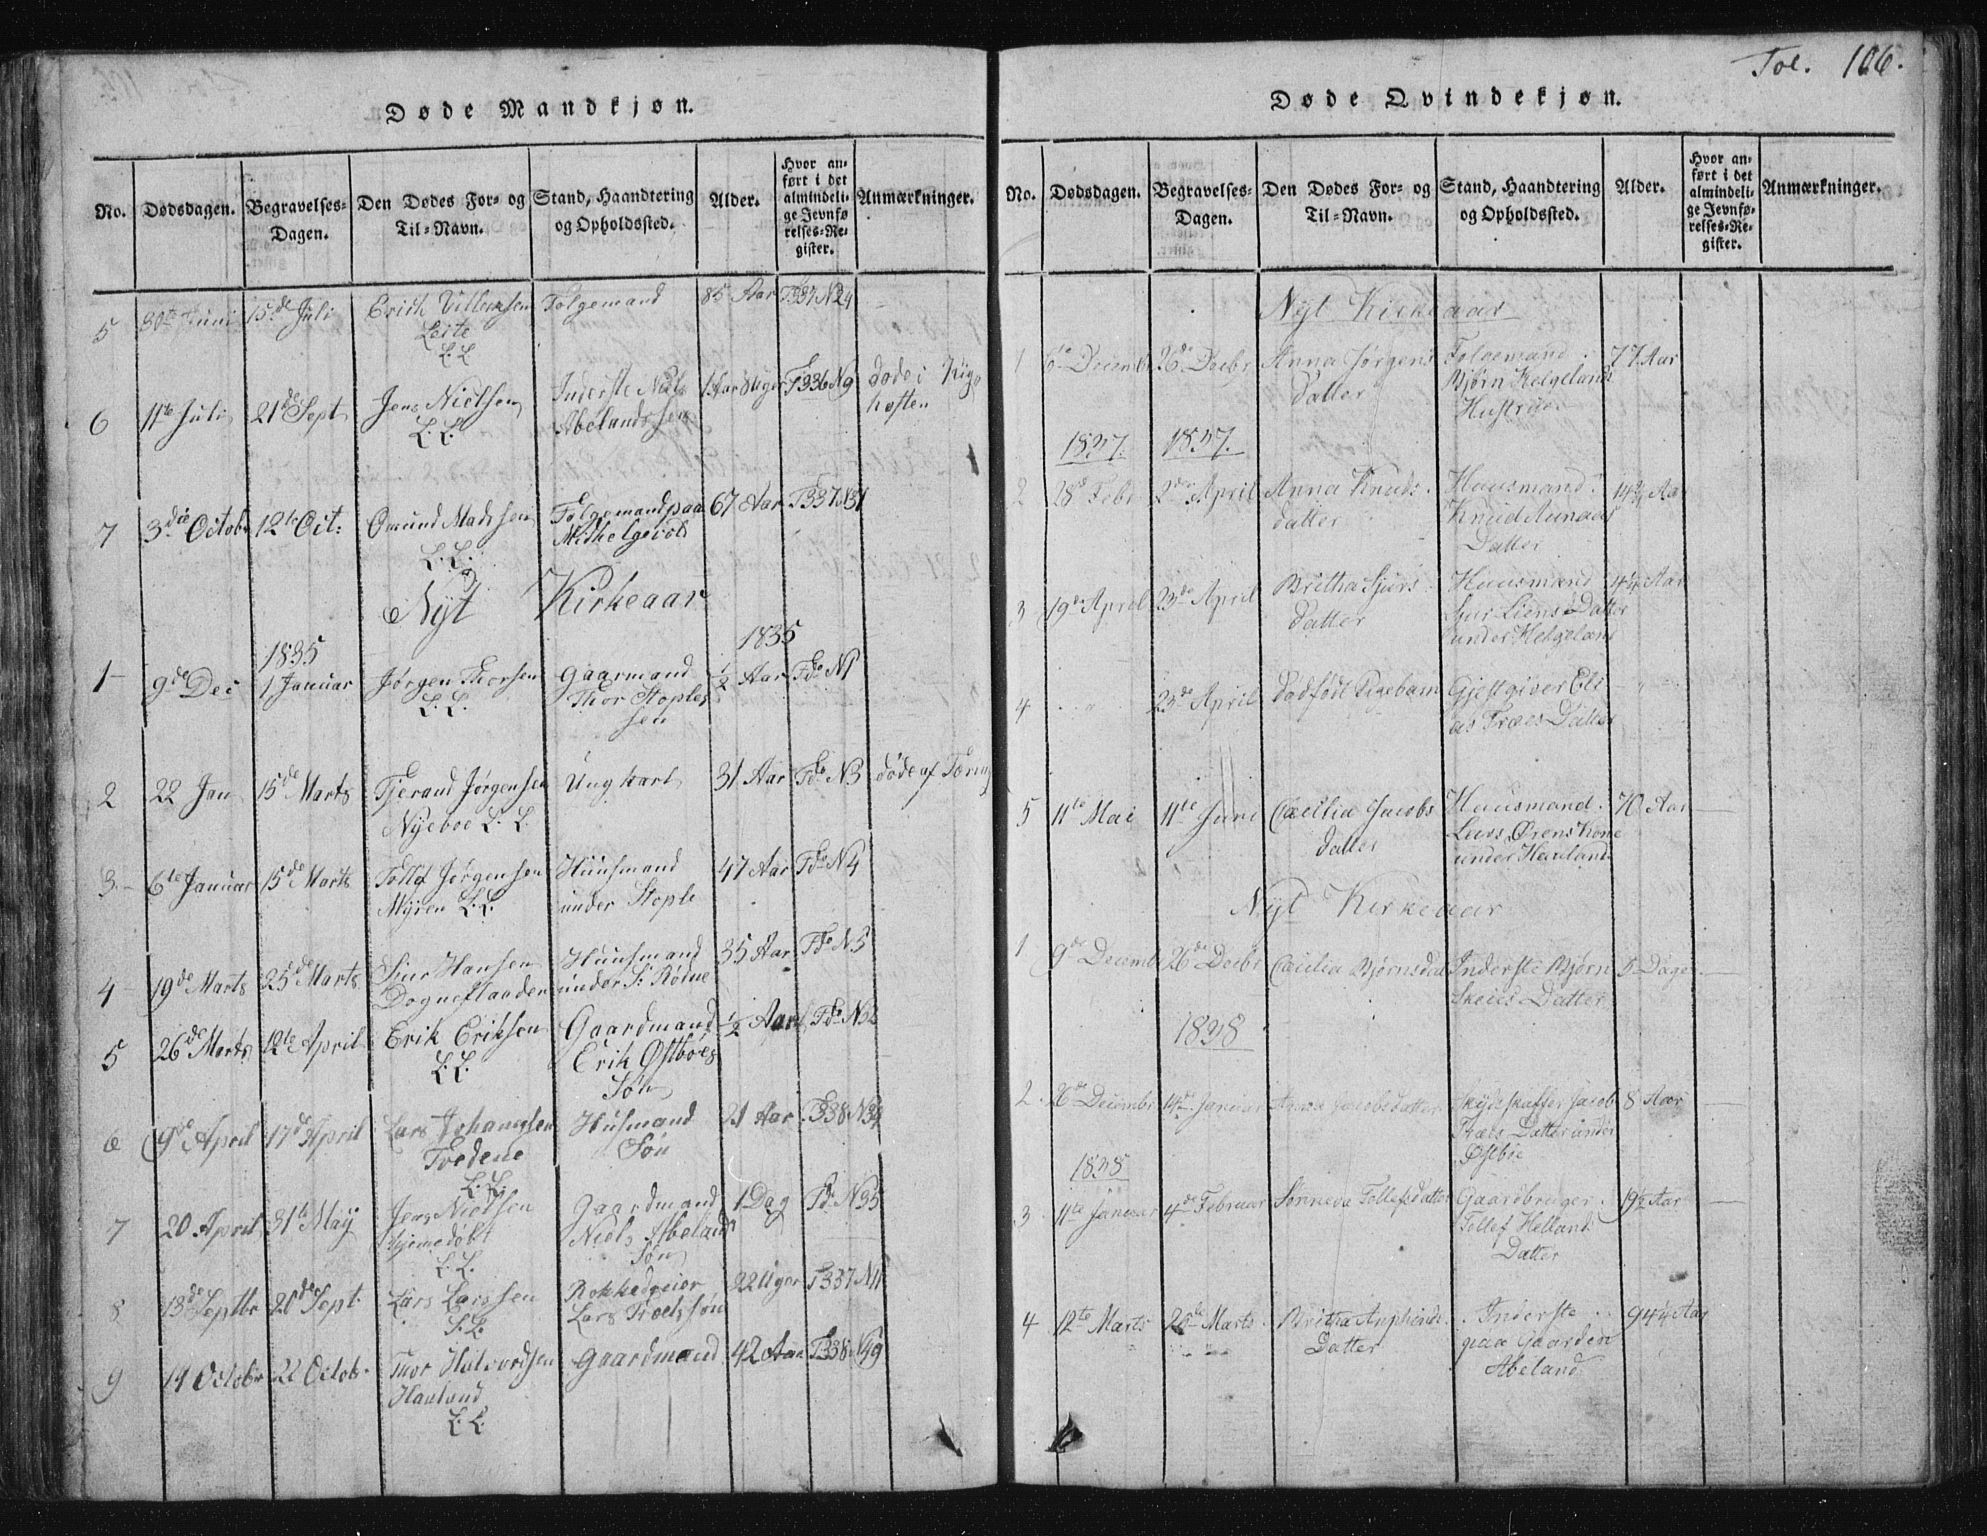 Døde Mandkjøn.
No. Dødsdagen. Begravelses-Dagen. Den Dødes For- og Til-Navn. Stand, Haandtering og Opholdssted. Alder. Hvor anført i det almindelige Jevnførelses-Register. Anmærkninger.
5 30te Juni 15de Juli Erich Villumsen Følgemand 85 Aar F337 N24
Leite
L.L
6 11te Juli 21de Sept Jens Nielsen Inderste Niels 1 Aar 8 Uger F336 N9 døde i Kig
L.L. Abelands Søn hosten
7 3die Octobr 12te Oct: Omund Madssen Følgemand paa 67 Aar F337 N31
L.L. Mithelgevold
Nyt Kirkeaar
1835 1835
1 9de Dec 1 Januar Jørgen Thorsen Gaarmand ½ Aar Fdo N1
L.L. Thor Stoples
sen
2 22 Jan 15de Marts Tjerand Jørgensen Ung karl 31 Aar Fdo N3 døde af Tæring
Nyeboe L.L.
3 6te Januar 15de Marts Tollef Jørgensen Huusmand 47 Aar Fdo N4
Myren L.L. under Stople
4 19de Marts 25de Marts Sjur Hansen Huusmand 35 Aar Fdo N5
under S: Rødne
5 26de Marts 12te April Erik Eriksen Gaardmand ½ Aar Fdo N32
L.L. Erik Østbøes
Søn
6 9de April 17de April Lars Johannsen Husmand 21 Aar F338 N34
Tvedene Søn
L.L.
7 20 April 31te May Jens Nielsen Gaardmand 1 Dag Fdo N35
hjemedøbt Niels Abelands
L.L. Søn
8 13de Septbr 20de Sept. Lars Larssen Rokkedreier 22 Uger F337 N11
L.L. Lars Træets søn
9 14 Octobr 22 Octob. Thor Halvordsen Gaardmand 42 Aar F338 N49
Haaland
L.L.
Fol. 106.
Døde Qvindekjøn.
No. Dødsdagen. Begravelses-Dagen. Den Dødes For- og Til-Navn. Stand, Haandtering og Opholdssted. Alder. Hvor anført i det almindelige Jevnførelses-Register. Anmærkninger.
Nyt Kirkeaar
1 6te Decembr 26de Decbr Anna Jørgens Følgemand 77 Aar
Datter Bjørn Helgelands
Hustrue
1837. 1837.
2 28de Febr 2den April Anna Knuds Huusmand 14¾ Aar
datter Knud Aunaas
Datter
3 19de April 23de April Britha Sjurs Huusmand 4¼ Aar
Datter Sjur Liens Datter
under Helgeland
4 " 23de April Dødfødt Pigebarn Gjestgiver Eli
as Træes Datter
5 11te Mai 11te Juni Cæcilia Jacobs Huusmand 70 Aar
datter Lars Ørens Kone
under Haaland
Nyt Kirkeaar
1 9de Decembr 26de Decbr Cæcilia Bjørnsdat Inderste Bjørn 5 Dage
Skeies Datter
1838
2 26de Decembr 14de Januar Anna Jacobsdatter Skydskaffer Jacob 8 Aar
Træes Datter under
Østbøe
1838
3 11te Januar 4de Februar Sønneva Tollefsdatter Gaardbruger 19½ Aar
Tollef Helland
Datter
4 12te Marts 20de Marts Britha Amphinds Inderste 94¼ Aar
Datter paa Gaarden
Abeland